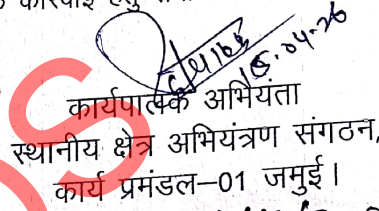 कार्रवाई हेतु
15.04.26
कार्यपालक अभियंता
स्थानीय क्षेत्र अभियंत्रण संगठन,
कार्य प्रमंडल–01 जमुई।